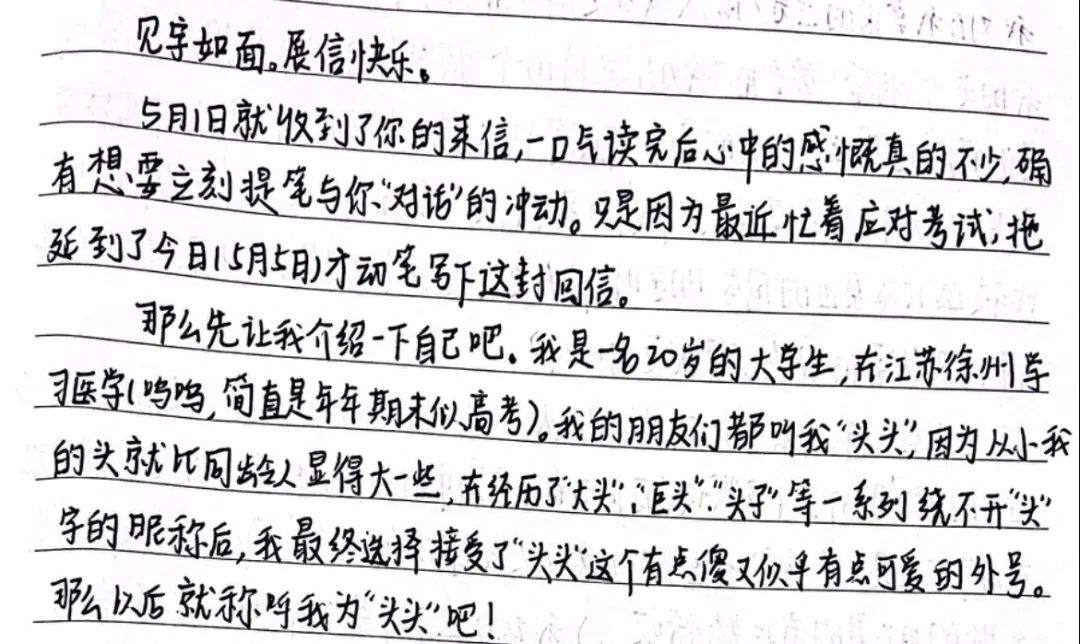 见字如面。展信快乐。
5月1日就收到了你的来信,一口气读完后心中的感慨真的不少,确
有想要立刻提笔与你“对话”的冲动。只是因为最近忙着应对考试,拖
延到了今日(5月5日)才动笔写下这封回信。
那么先让我介绍一下自己吧。我是一名20岁的大学生,在江苏徐州学
习医学(呜呜,简直是年年期末似高考)。我的朋友们都叫我“头头”,因为从小我
的头就比同龄人显得大一些,在经历了“大头”、“巨头”、“头子”等一系列绕不开“头”
字的昵称后,我最终选择接受了“头头”这个有点傻又似乎有点可爱的外号。
那么以后就称呼我为“头头”吧!